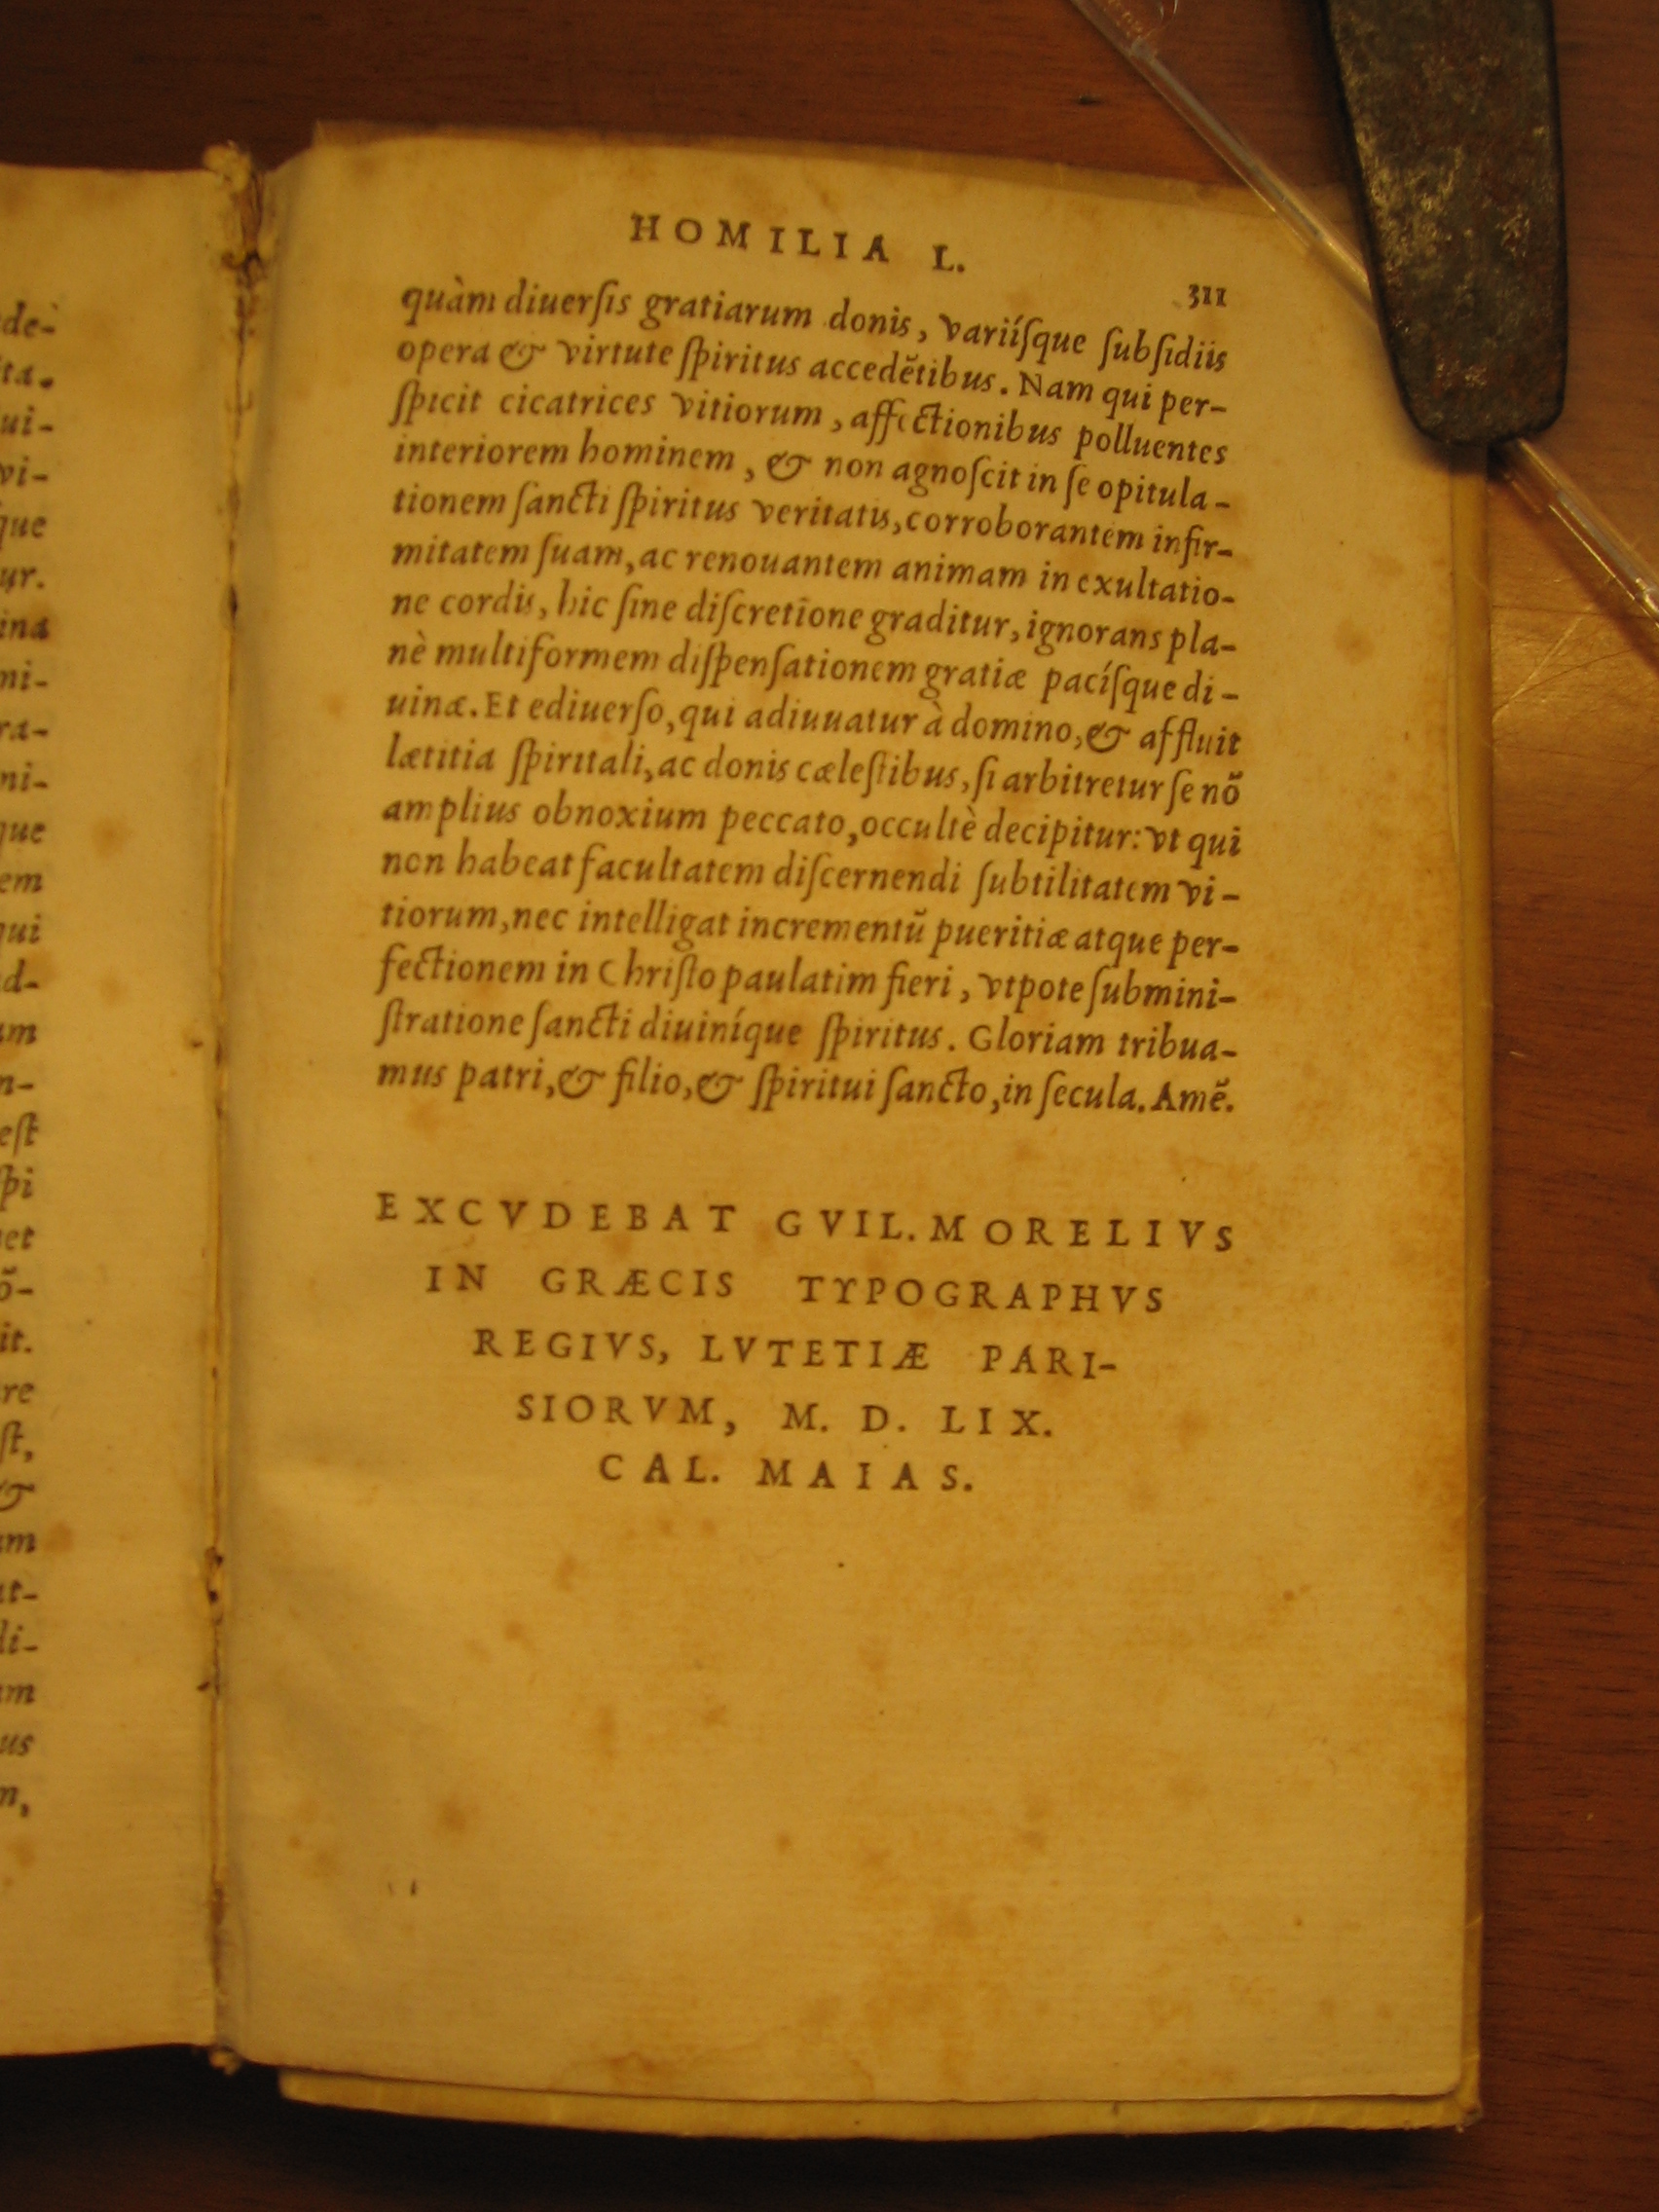 HOMILIA L.
311
quàm diuerſis gratiarum donis, variíſque ſubſidiis
opera & virtute ſpiritus accedētibus. Nam qui per-
ſpicit cicatrices vitiorum, affectionibus polluentes
interiorem hominem, & non agnoſcit in ſe opitula-
tionem ſancti ſpiritus veritatis, corroborantem infir-
mitatem ſuam, ac renouantem animam in exultatio-
ne cordis, hic ſine diſcretione graditur, ignorans pla-
nè multiformem diſpenſationem gratiæ pacíſque di-
uinæ. Et ediuerſo, qui adiuuatur à domino, & affluit
lætitia ſpiritali, ac donis cæleſtibus, ſi arbitretur ſe nō
amplius obnoxium peccato, occultè decipitur: vt qui
non habeat facultatem diſcernendi ſubtilitatem vi-
tiorum, nec intelligat incrementū pueritiæ atque per-
fectionem in Chriſto paulatim fieri, vtpote ſubmini-
ſtratione ſancti diuiníque ſpiritus. Gloriam tribua-
mus patri, & filio, & ſpiritui ſancto, in ſecula. Amē.
EXCVDEBAT GVIL. MORELIVS
IN GRÆCIS TYPOGRAPHVS
REGIVS, LVTETIÆ PARI-
SIORVM, M. D. LIX.
CAL. MAIAS.